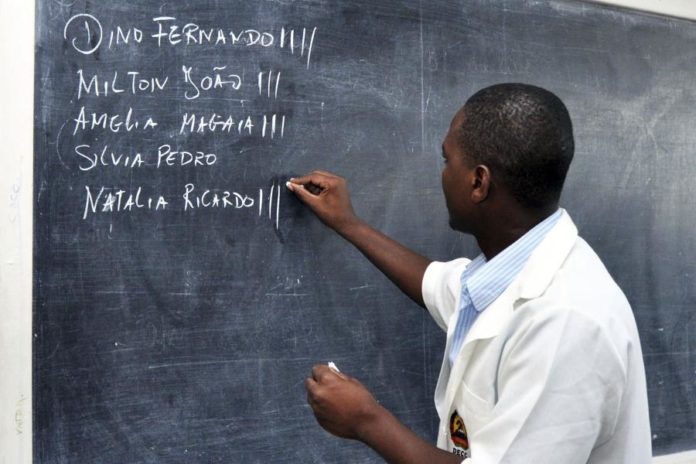 ① DINO FERNANDO |||||
MILTON JOÃO |||
AMELIA MAGAIA |||
SILVIA PEDRO
NATALIA RICARDO |||